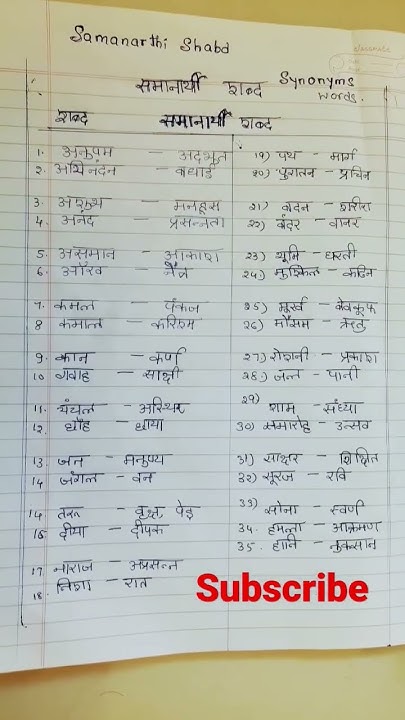 Samanarthi Shabd
समानार्थी शब्द Synonyms words.
शब्द समानार्थी शब्द
1. अनुपम - अदभूत
2. अभिनंदन - बधाई
3. अशुभ - मनहूस
4. आनंद - प्रसन्नता
5. असमान - आकाश
6. आँख - नेत्र
7. कमल - पंकज
8 कमाल - करिश्म
9. कान - कर्ण
10 गवाह - साक्षी
11. चंचल - अस्थिर
12. छाँह - छाया
13. जन - मनुष्य
14 जंगल - वन
14 तरू - वृक्ष, पेड़
15. दीया - दीपक
17. नाराज - अप्रसन्न
18. निशा - रात
19) पथ - मार्ग
20) पुरातन - प्रचिन
21) बदन - शरीर
22) बंदर - वानर
23) भूमि - धरती
24) मुश्किल - कठिन
25) मूर्ख - बेवकूफ
26) मौसम - ऋतु
27) रोशनी - प्रकाश
28.) जल - पानी
29) शाम - संध्या
30) समारोह - उत्सव
31) साक्षर - शिक्षित
32) सूरज - रवि
33) सोना - स्वर्ण
34. हमला - आक्रमण
35. हानि - नुकसान
Subscribe